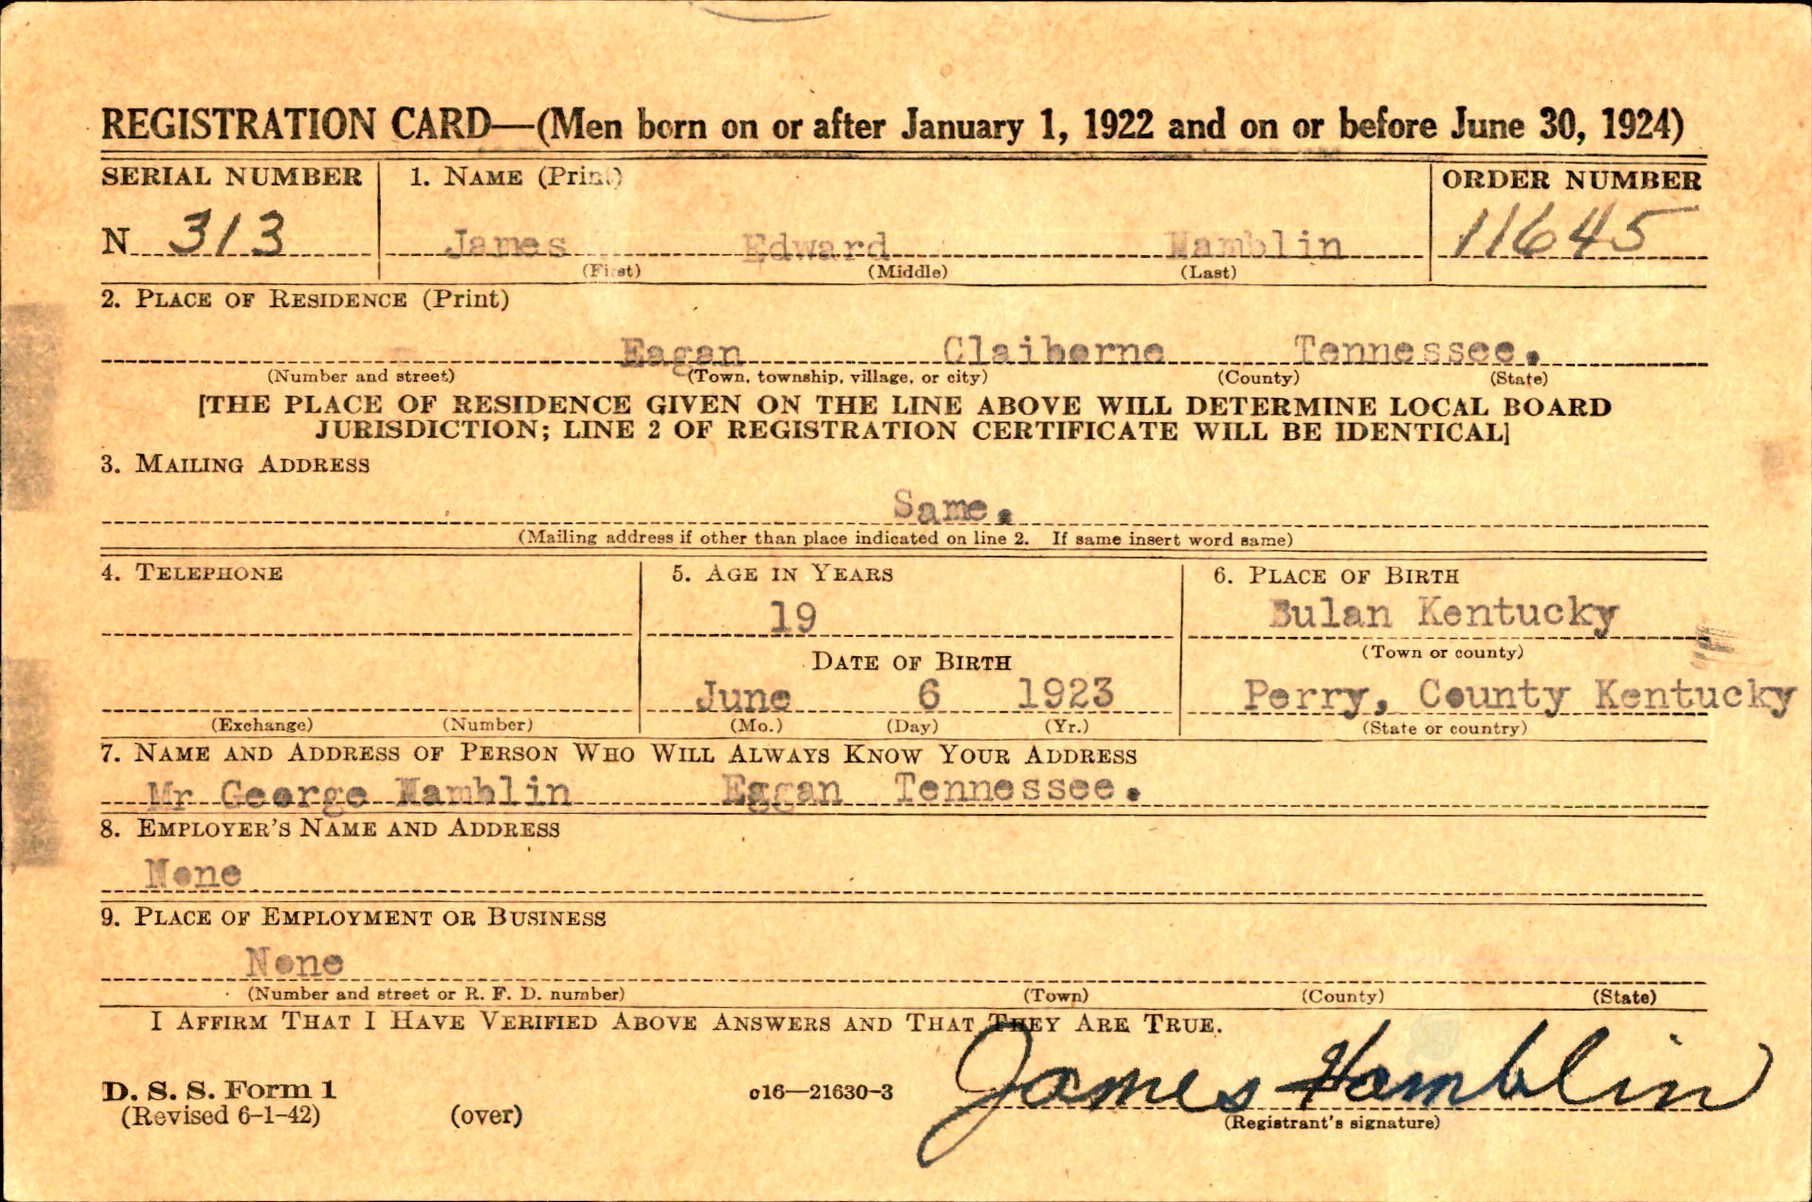 REGISTRATION CARD—(Men born on or after January 1, 1922 and on or before June 30, 1924)
SERIAL NUMBER 1. NAME (Print) ORDER NUMBER
N 313 James Edward Hamblin 11645
(First) (Middle) (Last)
2. PLACE OF RESIDENCE (Print)
Eagan Claiborne Tennessee.
(Number and street) (Town, township, village, or city) (County) (State)
[THE PLACE OF RESIDENCE GIVEN ON THE LINE ABOVE WILL DETERMINE LOCAL BOARD
JURISDICTION; LINE 2 OF REGISTRATION CERTIFICATE WILL BE IDENTICAL]
3. MAILING ADDRESS
Same.
(Mailing address if other than place indicated on line 2. If same insert word same)
4. TELEPHONE 5. AGE IN YEARS 6. PLACE OF BIRTH
19 Bulan Kentucky
(Town or county)
DATE OF BIRTH
June 6 1923 Perry, County Kentucky
(Exchange) (Number) (Mo.) (Day) (Yr.) (State or country)
7. NAME AND ADDRESS OF PERSON WHO WILL ALWAYS KNOW YOUR ADDRESS
Mr George Hamblin Eagan Tennessee.
8. EMPLOYER'S NAME AND ADDRESS
None
9. PLACE OF EMPLOYMENT OR BUSINESS
None
(Number and street or R. F. D. number) (Town) (County) (State)
I AFFIRM THAT I HAVE VERIFIED ABOVE ANSWERS AND THAT THEY ARE TRUE.
James Hamblin
D. S. S. Form 1 c16—21630-3
(Revised 6-1-42) (over) (Registrant's signature)